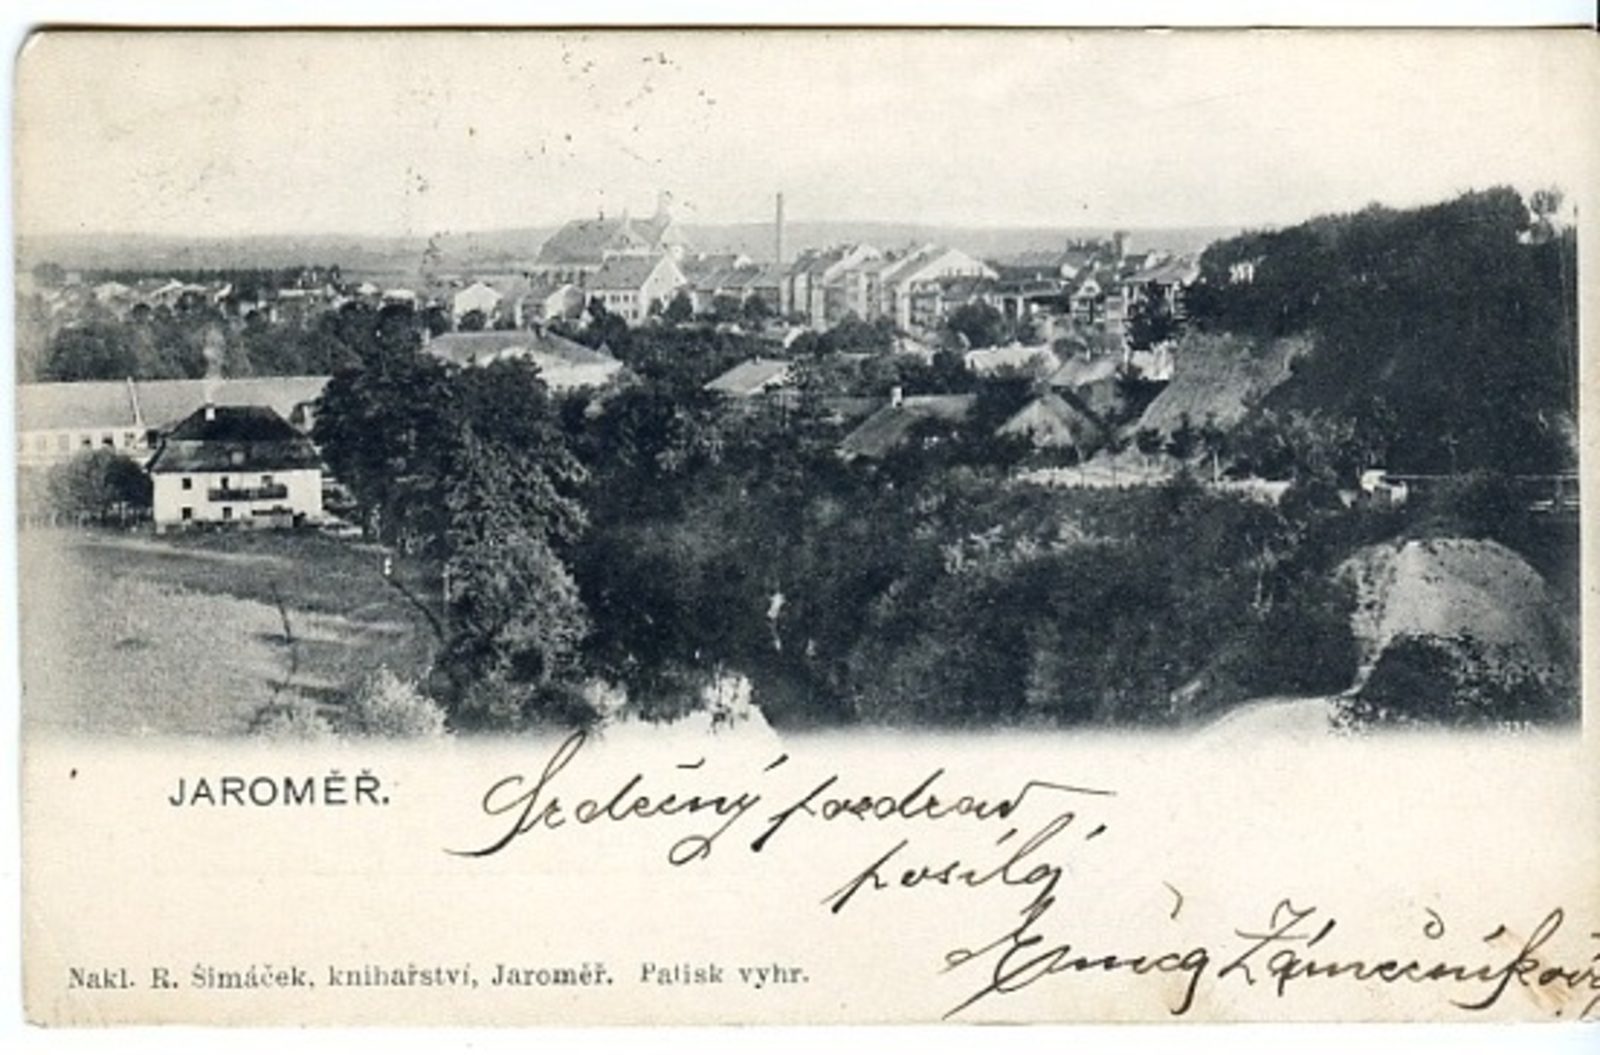 JAROMĚŘ.
Srdečný pozdrav
posílá
Zámečníková
Nakl. R. Šimáček, knihařství, Jaroměř. Patisk vyhr.